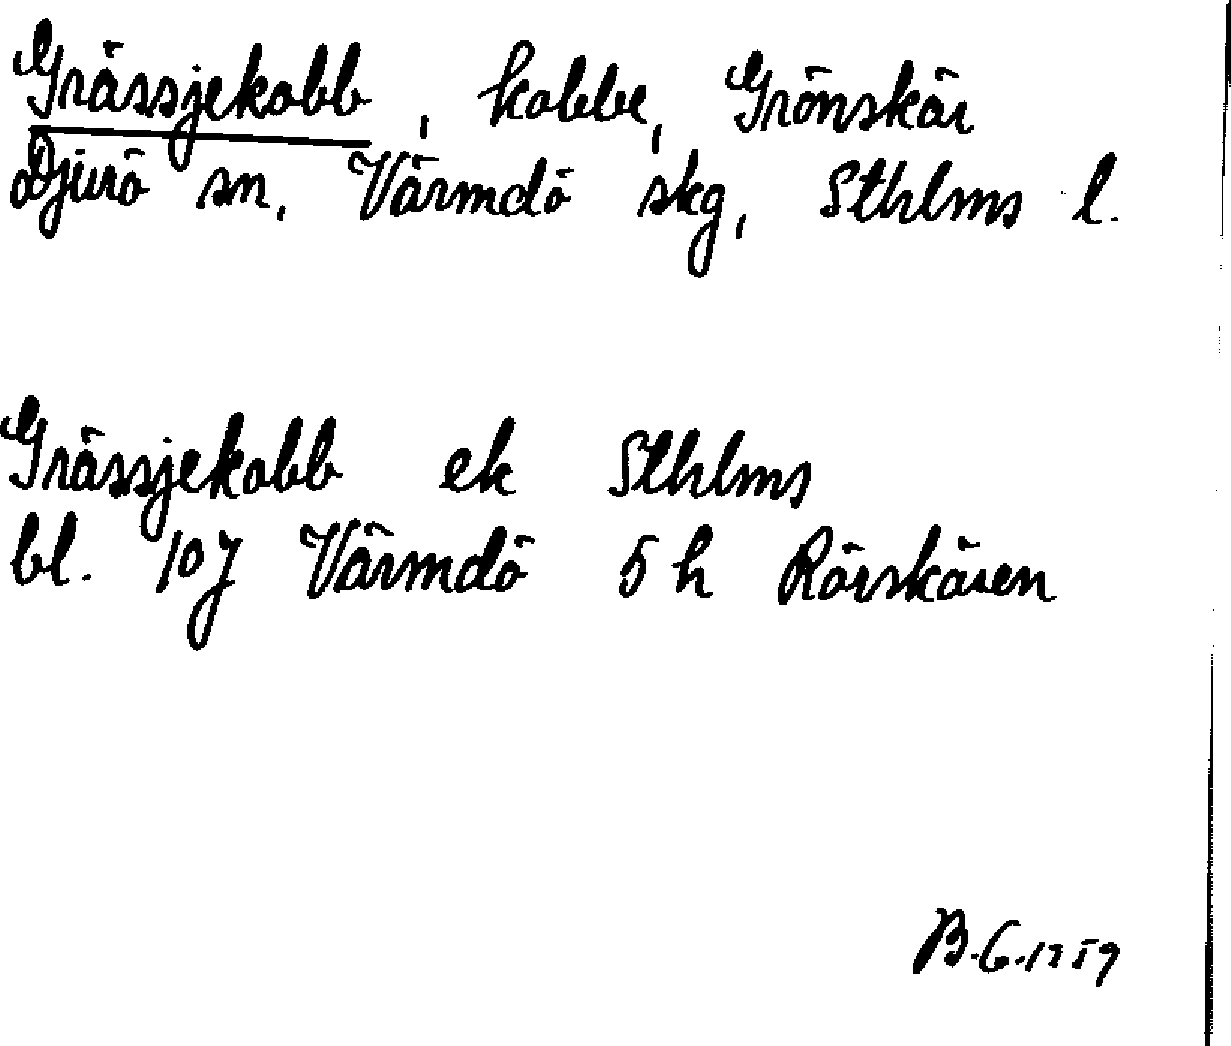 Grässjekobb, kobbe, Grönskär
Djurö sn, Värmdö skg, Sthlms l.
Grässjekobb ek Sthlms
bl. 107 Värmdö 5 h Rörskären
B.G.